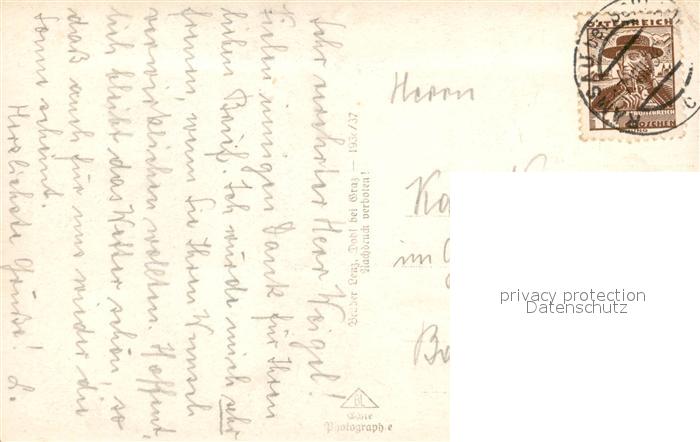 Sehr verehrter Herr Weigel!
Vielen innigen Dank für Ihren
lieben Brief. Ich würde mich sehr
freuen, wenn Sie Ihren Wunsch
verwirklichen wollten. Hoffent-
lich bleibt das Wetter schön, so
daß auch für uns wieder die
Sonne scheint.
Herzlichste Grüße! L.
Brüder Lenz, Dobl bei Graz — 1936/37
Nachdruck verboten!
BL
Echte
Photographie
Herrn
im
ÖSTERREICH
GROSCHEN
RAMSAU
privacy protection
Datenschutz